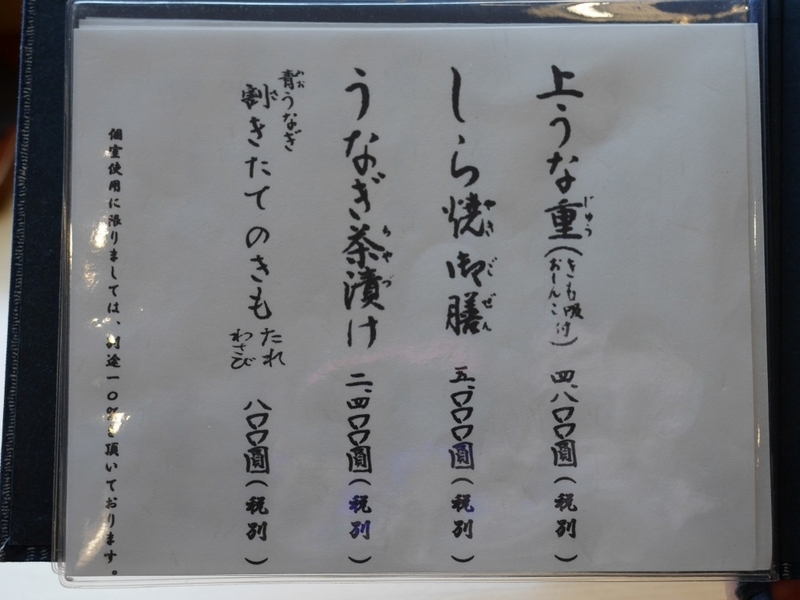 上うな重(きも吸付おしんこ) 四、八〇〇圓(税別)
じゅう
しら焼御膳 五、〇〇〇圓(税別)
やきごぜん
うなぎ茶漬け 二、四〇〇圓(税別)
ちゃづ
青うなぎ
あお
割きたてのきも たれ わさび 八〇〇圓(税別)
さ
個室使用に限りましては、別途一〇%を頂いております。